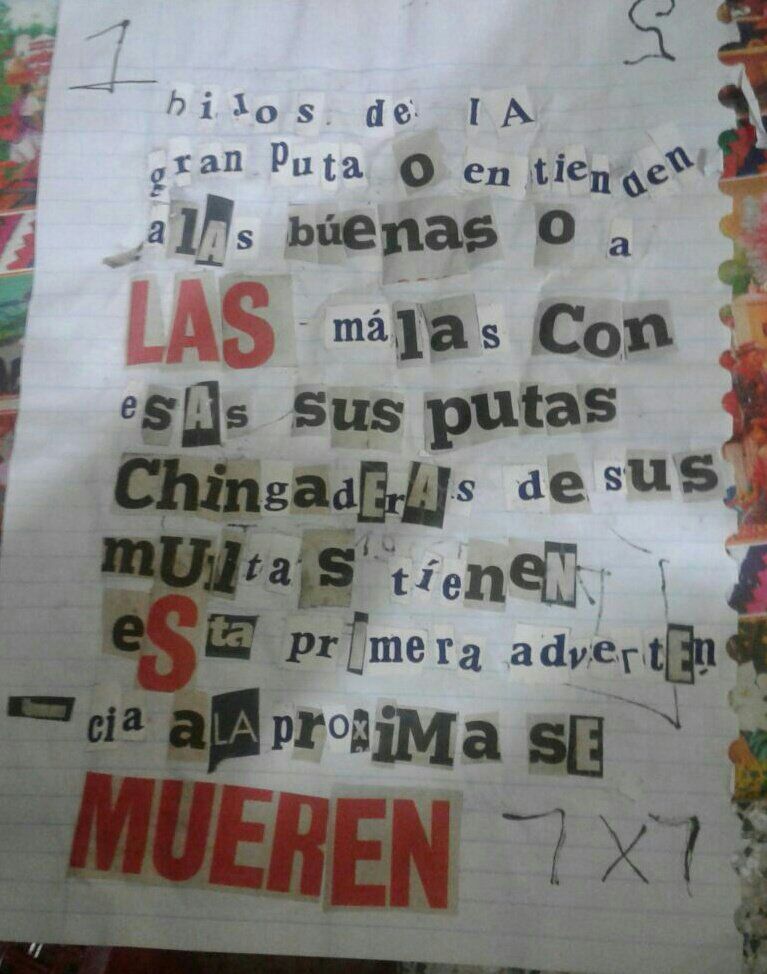 1 S
hiJos de lA
gran Puta o entienden
alAs búenas o a
LAS málas Con
esAs sus putas
ChingadErAs de sus
mUltas tíeneN
eSta primera advertEn
-cia aLA proxiMa sE
MUEREN 7x7